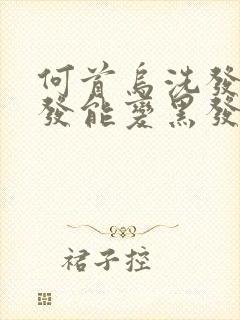 何首烏洗發
發能變黑發
裙子控